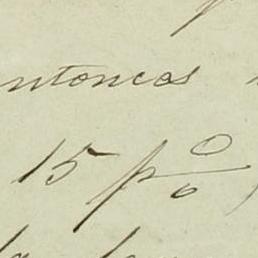 entonces
15 p%